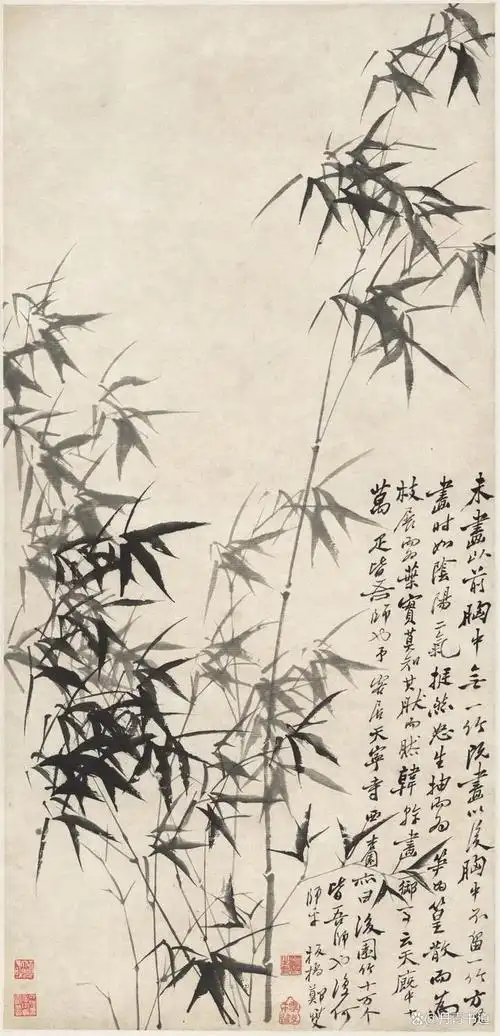 未畫以前胸中無一竹既畫以後胸中不留一竹方其
畫時如陰陽二氣挺然怒生抽而為筍為篁散而為
枝展而為葉實莫知其然而然韓幹畫御馬云天廄中十
萬匹皆吾師也予客居天寧寺西園亦曰後園竹十萬个
皆吾師也復何
師乎 板橋鄭燮